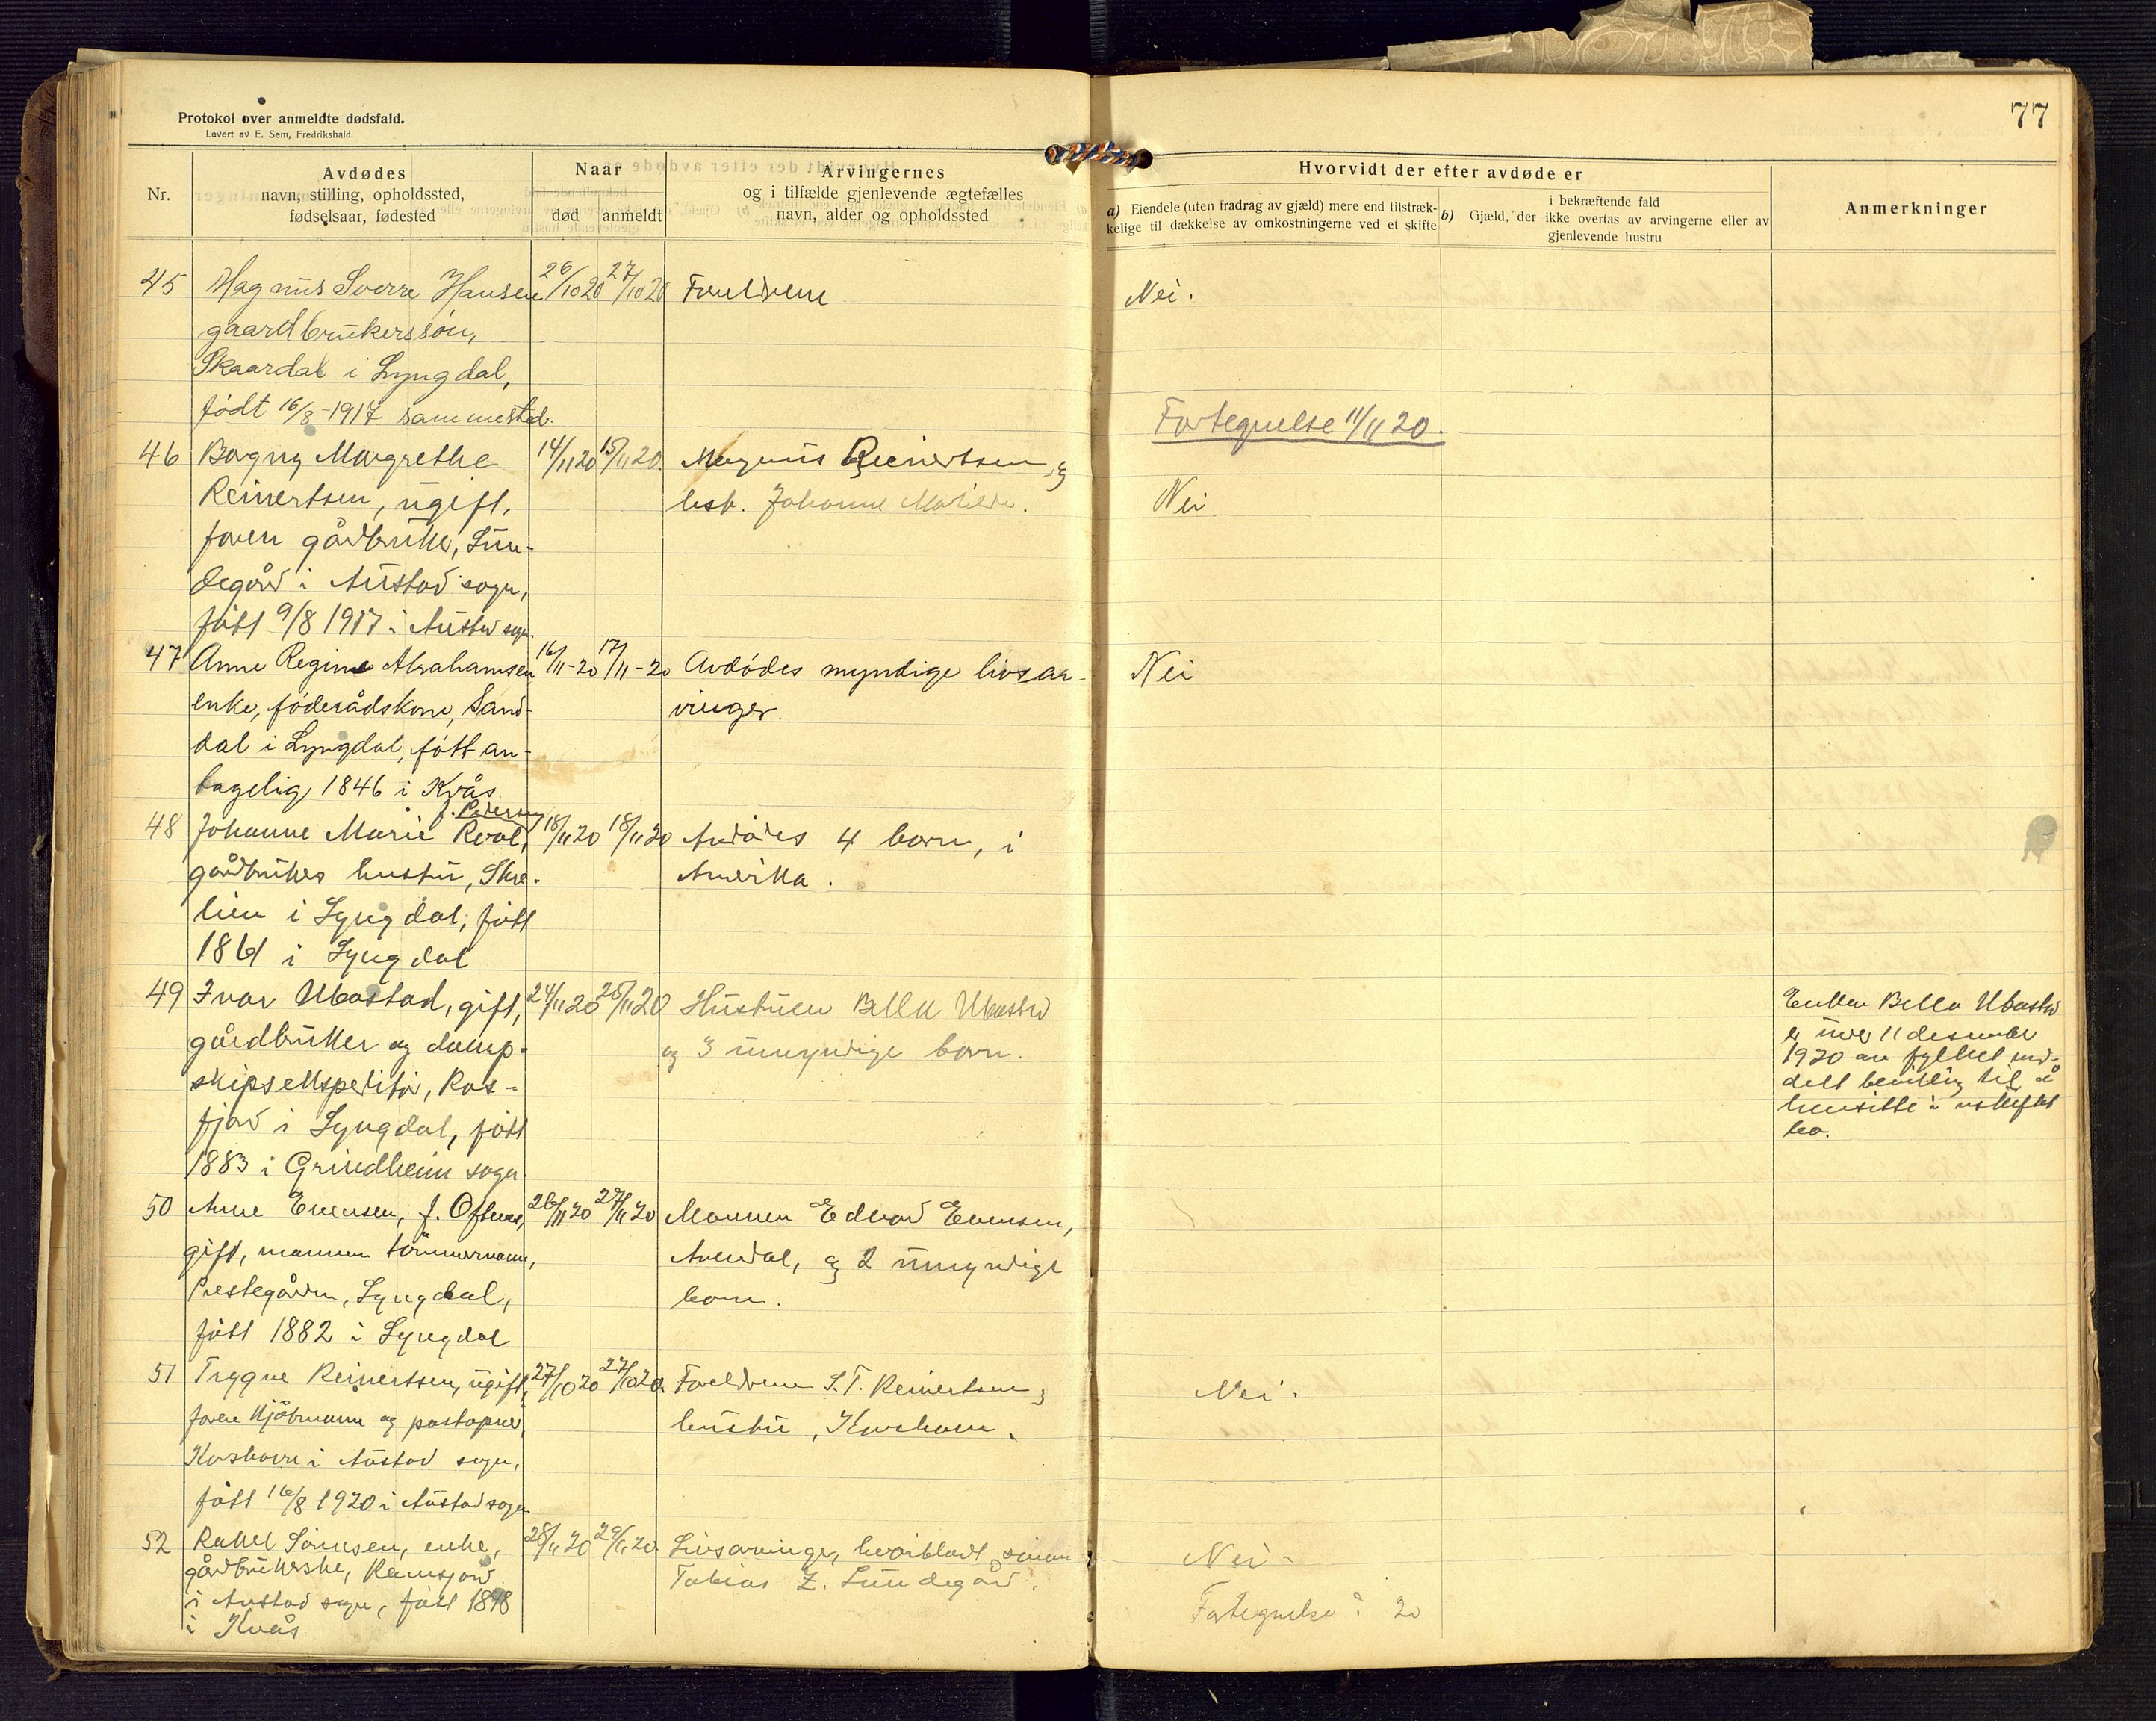 77
Protokol over anmeldte dødsfald.
Levert av E. Sem, Fredrikshald.
Nr.
Avdødes
navn, stilling, opholdssted,
fødselsaar, fødested
Naar
død
anmeldt
Arvingernes
og i tilfælde gjenlevende ægtefælles
navn, alder og opholdssted
Hvorvidt der efter avdøde er
a) Eiendele (uten fradrag av gjæld) mere end tilstræk-
kelige til dækkelse av omkostningerne ved et skifte
i bekræftende fald
b) Gjæld, der ikke overtas av arvingerne eller av
gjenlevende hustru
Anmerkninger
45 Magnus Sverre Hansen 26/10 20 27/10 20 Foreldrene Nei.
gaardbrukerssøn,
Skaardal i Lyngdal,
født 16/8-1917 sammested.
Fortegnelse 11/11 20.
46 Borgny Margrethe 14/11 20 15/11 20. Magnus Reinertsen og
Reinertsen, ugift, hst. Johanne Matilde. Nei
faren gårdbruker, Lun-
degård i Austad sogn,
født 9/8 1917 i Austad sogn.
47 Anne Regine Abrahamsen 16/11-20 17/11-20 Avdødes myndige livsar- Nei
enke, føderådskone, Sand- vinger.
dal i Lyngdal, født an-
tagelig 1846 i Kvås.
f. Pedersen
48 Johanne Marie Roal, 18/11 20 18/11 20 Avdødes 4 born, i
gårdbrukers hustru, Skre- Amerika.
lien i Lyngdal, født
1861 i Lyngdal
49 Ivar Ubostad, gift, 24/11 20 25/11 20 Hustruen Bella Ubostad
gårdbruker og damp- og 3 umyndige born.
skipsekspeditør, Ros-
fjord i Lyngdal, født
1883 i Grindheim sogn.
Enken Bella Ubostad
er under 11 desember
1920 av fylket med-
delt bevilling til å
hensitte i uskiftet
bo.
50 Anne Evensen, f. Oftenes, 26/11 20 27/11 20 Mannen Edvard Evensen,
gift, mannen tømmermann, Arendal, og 2 umyndige
Prestegården, Lyngdal, born.
født 1882 i Lyngdal
51 Trygve Reinertsen, ugift, 27/10 20 27/10 20. Foreldrene S. T. Reinertsen og Nei.
faren kjøbmann og poståpner, hustru, Korshavn.
Korshavn i Austad sogn,
født 16/8 1920 i Austad sogn
52 Rakel Sørensen, enke, 28/11 20 29/11 20. Livsarvinger, hvoriblandt sønnen Nei.
gårdbrukerske, Ramsjord Tobias Z. Lundegård.
i Austad sogn, født 1848 Fortegnelse 20
i Kvås